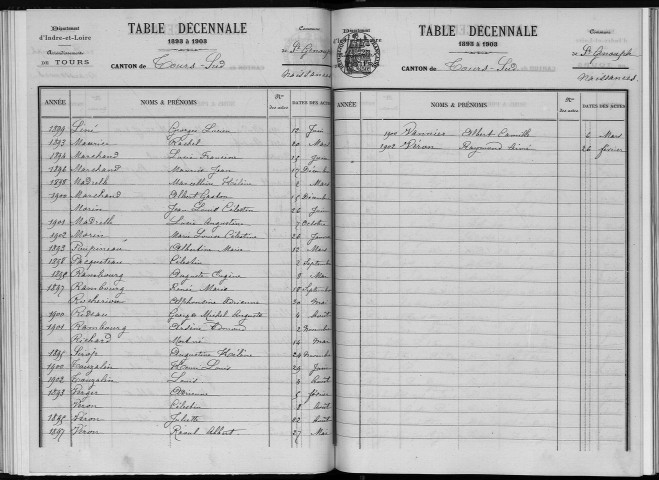 Département
d'Indre-et-Loire
Arrondissement
DE TOURS
TABLE DÉCENNALE
1893 à 1903
CANTON de Tours-Sud
Commune
de St Genouph
Naissances
ANNÉE NOMS & PRÉNOMS Nos des actes DATES DES ACTES
1899 Georges Lucien 12 Juin
1893 Meunier Rachel 20 Mars
1894 Marchand Lucie Francine 15 Juin
1896 Marchand Maurice Jean 17 Décembre
1898 Madreth Marcelline Hélène 2 Mars
1900 Marchand Albert Gaston 15 Décembre
Morin Jean Louis Célestin 26 Juin
1901 Madreth Lucie Augustine 7 Octobre
1902 Morin Marie Louise Célestine 24 Juin
1893 Poupineau Albertine Marie 12 Mars
1898 Pacqueteau Célestin 3 Septembre
1896 Rambourg Auguste Eugène 9 Mai
1897 Rambourg Renée Marie 18 Septembre
Alphonsine Adrienne 30 Mai
1900 Georges Michel Auguste 4 Août
1901 Rambourg Arsène Edmond 2 Novembre
Richard 14 Mai
1895 Augustine Hélène 24 Novembre
1900 Tauzalin Henri Louis 29 Juin
1902 Tauzalin Louis 4 Août
1893 Verger Adrienne 5 février
Véron Célestin 8 Août
1895 Véron Juliette 02 Août
1897 Véron Raoul Albert 27 Mai
TABLE DÉCENNALE
1893 à 1903
CANTON de Tours-Sud
Commune
de St Genouph
Naissances
ANNÉE NOMS & PRÉNOMS Nos des actes DATES DES ACTES
1900 Vannier Albert Camille 6 Mars
1902 Véron Raymond 26 février